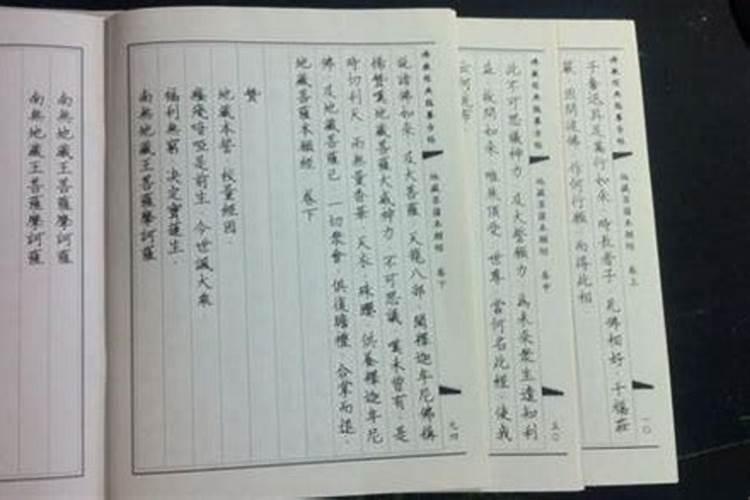 地藏菩薩本願經 卷上
一〇
子奮迅具足萬行如來 時長者子 見佛相好 千福莊
嚴 因問彼佛 作何行願 而得此相
地藏菩薩本願經 卷中
五〇
此不可思議神力 及大誓願力 為未來眾生遠知利
益 故問如來 唯然頂受 世尊 當何名此經 使我
云何流布
地藏菩薩本願經 卷下
九四
說諸佛如來 及大菩薩 天龍八部 聞釋迦牟尼佛稱
揚讚歎地藏菩薩大威神力 不可思議 歎未曾有 是
時忉利天 雨無量香華 天衣 珠瓔 供養釋迦牟尼
佛 及地藏菩薩已 一切眾會 俱復瞻禮 合掌而退
地藏菩薩本願經 卷下
贊
地藏本誓 校量經因
癃殘瘖啞是前生 今世誦大乘
福利無窮 決定寶蓮生
南無地藏王菩薩摩訶薩
南無地藏王菩薩摩訶薩
南無地藏王菩薩摩訶薩